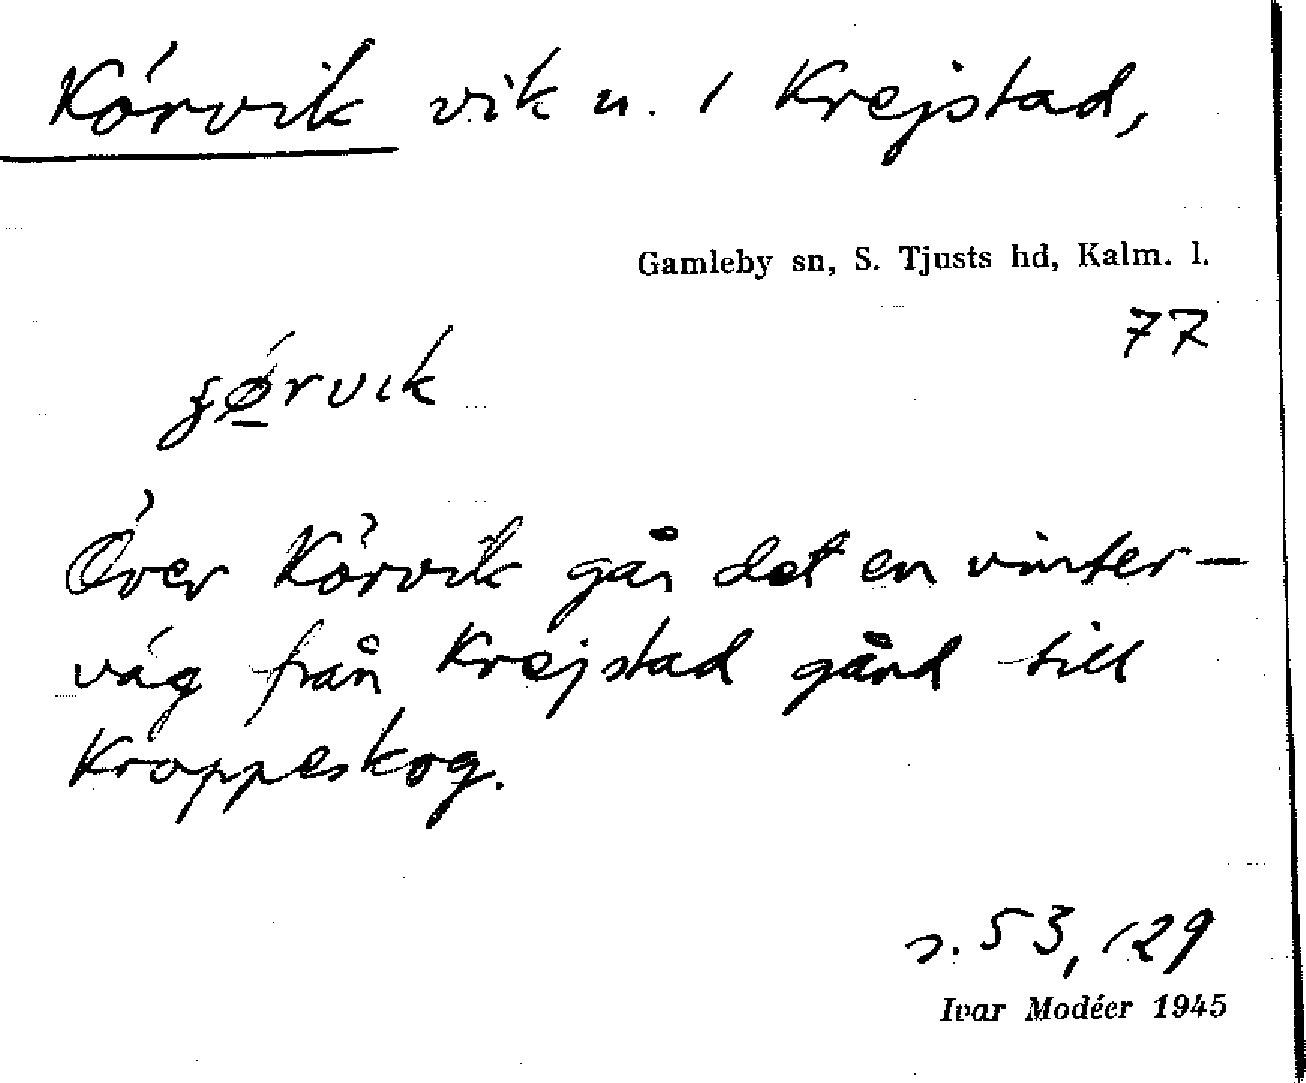 Körvik vik u. 1 Krejstad,
Gamleby sn, S. Tjusts hd, Kalm. l.
77
Över Körvik går det en vinter-
väg från Krejstad gård till
Kroppeskog.
s. 53, 129
Ivar Modéer 1945